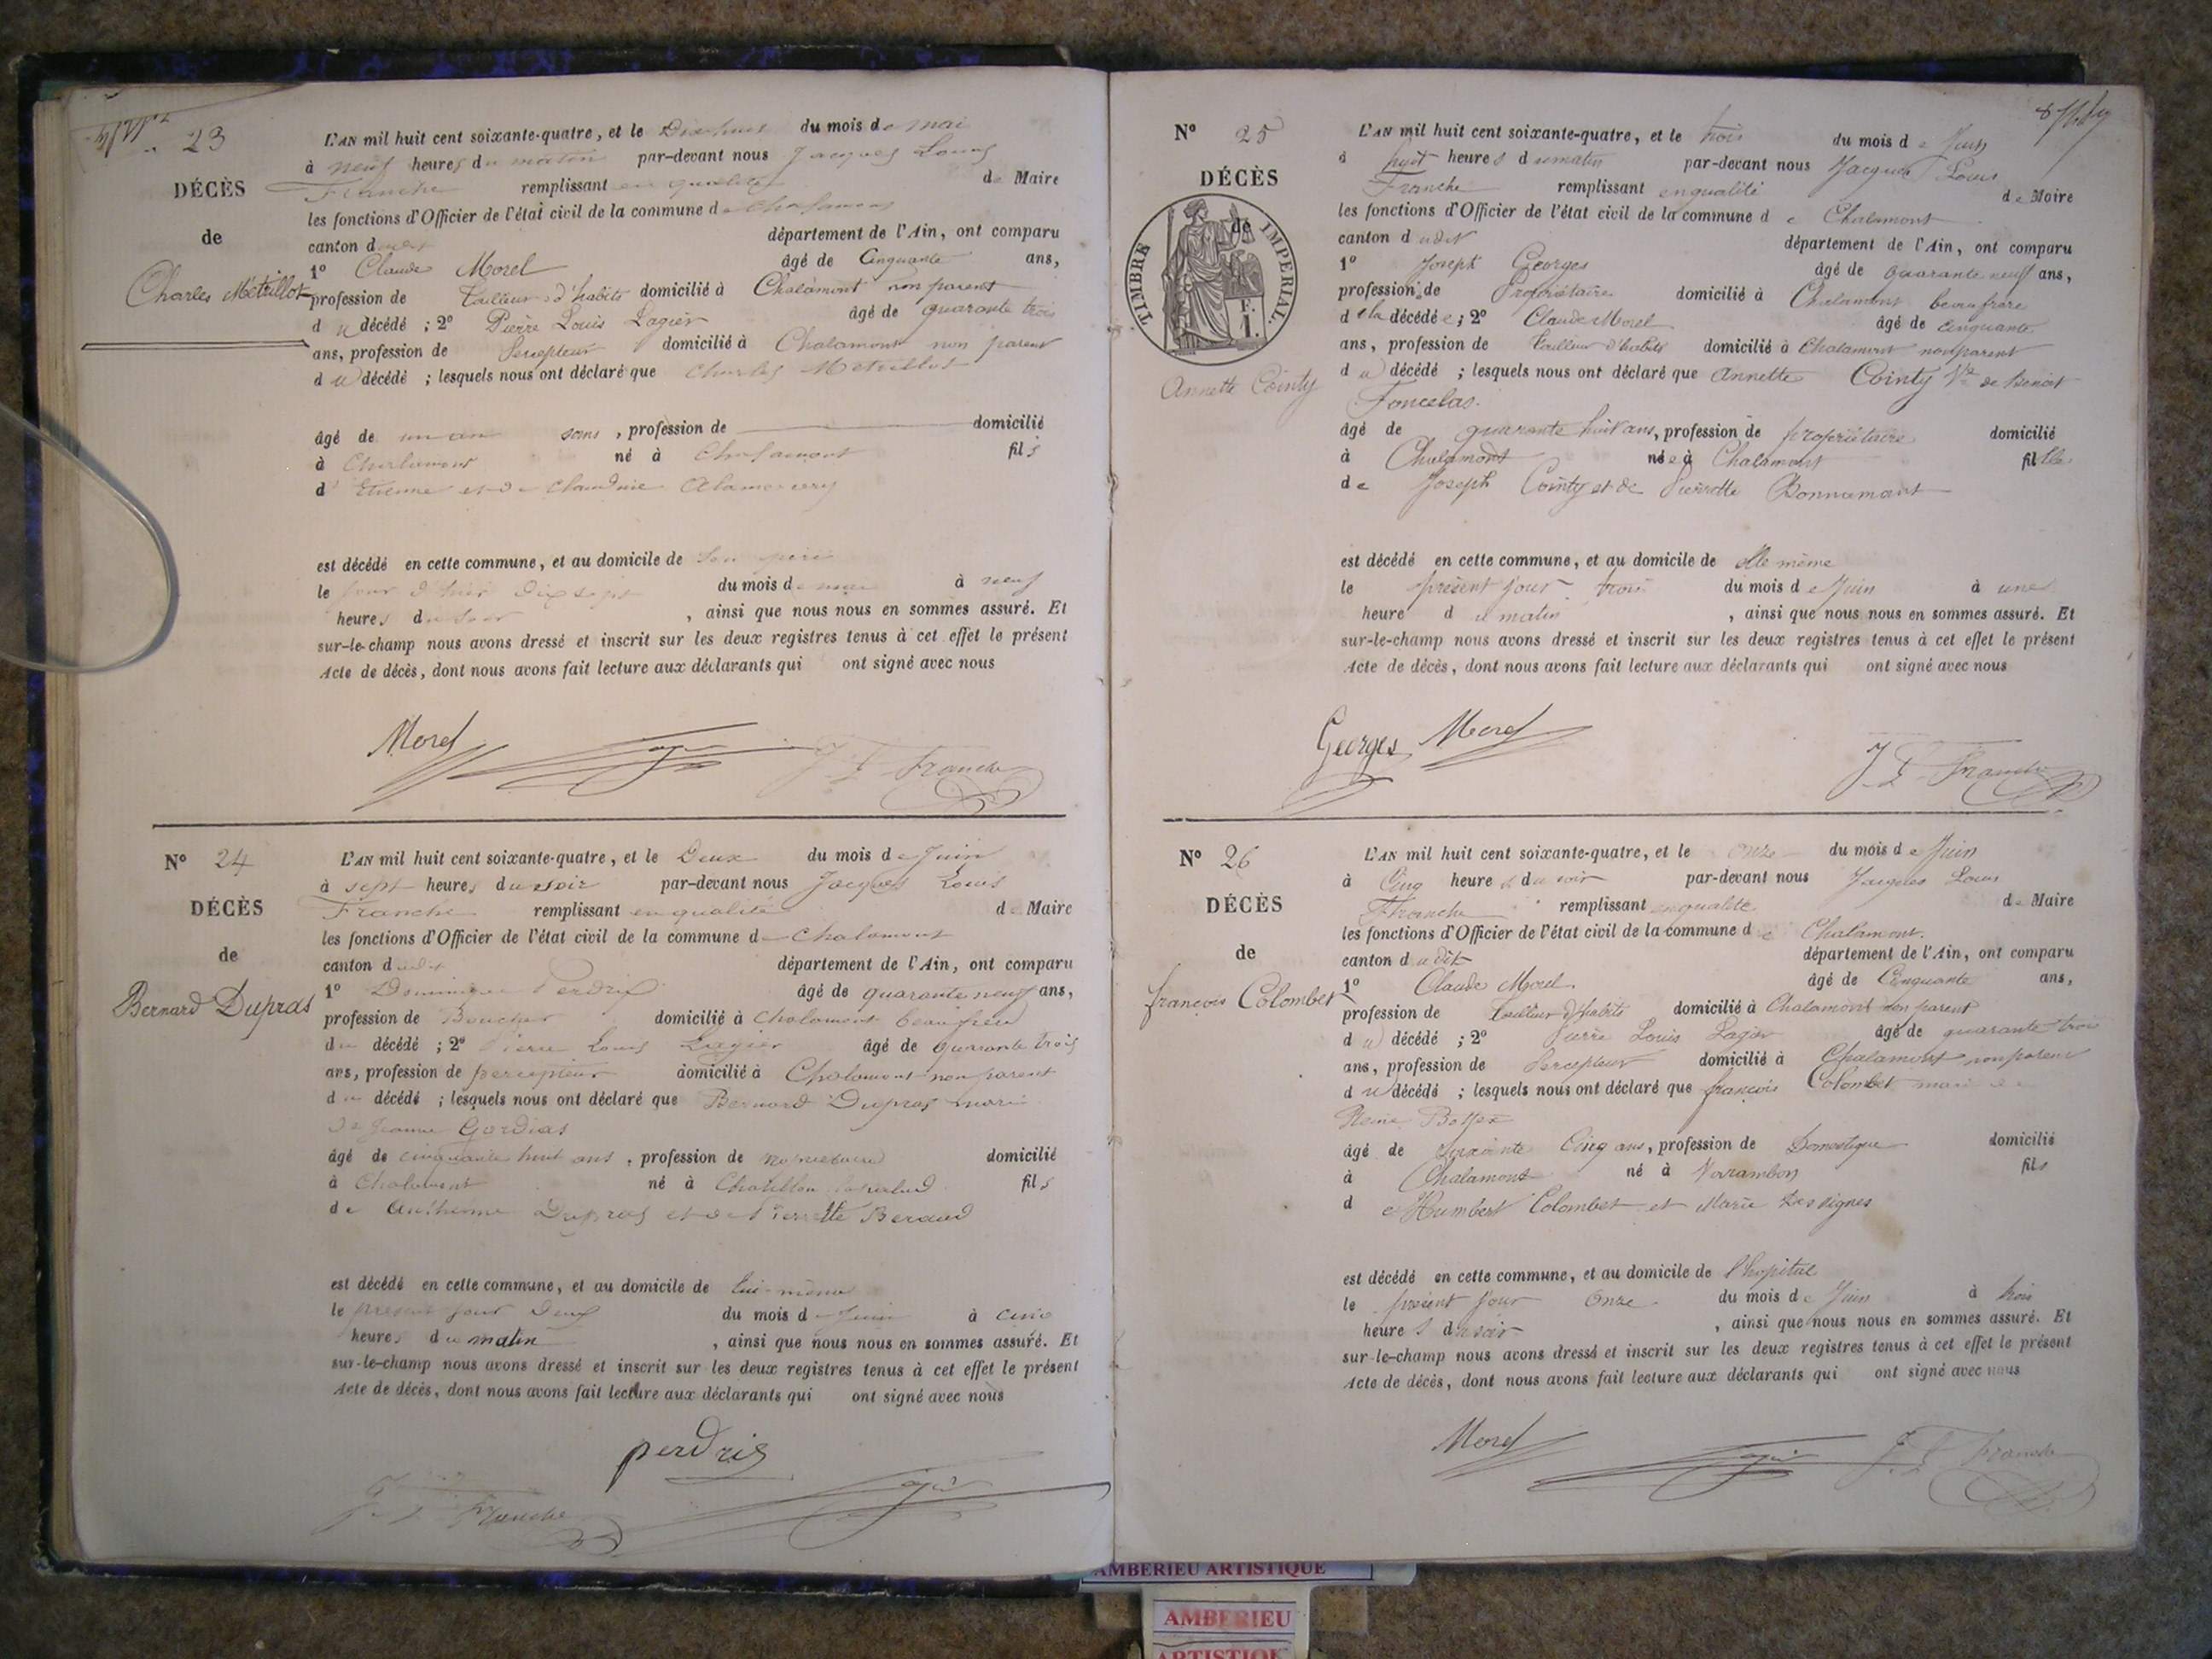 23
DÉCÈS
de
Charles Métrillot
L'AN mil huit cent soixante-quatre, et le Dix huit du mois de mai
à neuf heures du matin par-devant nous Jacques Louis
Franche remplissant en qualité de Maire
les fonctions d'Officier de l'état civil de la commune de Chalamont
canton dudit département de l'Ain, ont comparu
1º Claude Morel âgé de Cinquante ans,
profession de Tailleur d'habits domicilié à Chalamont non parent
du décédé ; 2º Pierre Louis Lagier âgé de quarante trois
ans, profession de Percepteur domicilié à Chalamont non parent
du décédé ; lesquels nous ont déclaré que Charles Metrillot
âgé de un an sans , profession de domicilié
à Chalamont né à Chalamont fils
d' Etienne et de Claudine
est décédé en cette commune, et au domicile de Son père
le jour d'hier Dix sept du mois de mai à neuf
heures du soir , ainsi que nous nous en sommes assuré. Et
sur-le-champ nous avons dressé et inscrit sur les deux registres tenus à cet effet le présent
Acte de décès, dont nous avons fait lecture aux déclarants qui ont signé avec nous
Morel Lagier J. L. Franche
Nº 24
DÉCÈS
de
Bernard Dupras
L'AN mil huit cent soixante-quatre, et le Deux du mois de Juin
à sept heures du soir par-devant nous Jacques Louis
Franche remplissant en qualité de Maire
les fonctions d'Officier de l'état civil de la commune de Chalamont
canton dudit département de l'Ain, ont comparu
1º Dominique Perdrix âgé de quarante neuf ans,
profession de Boucher domicilié à Chalamont beau frère
du décédé ; 2º Pierre Louis Lagier âgé de quarante trois
ans, profession de percepteur domicilié à Chalamont non parent
du décédé ; lesquels nous ont déclaré que Bernard Dupras mari
de Jeanne Gordias
âgé de cinquante huit ans , profession de propriétaire domicilié
à Chalamont né à Chatillon la palud fils
de Anthelme Dupras et de Pierrette Beraud
est décédé en cette commune, et au domicile de lui-même
le présent jour Deux du mois de Juin à cinq
heures du matin , ainsi que nous nous en sommes assuré. Et
sur-le-champ nous avons dressé et inscrit sur les deux registres tenus à cet effet le présent
Acte de décès, dont nous avons fait lecture aux déclarants qui ont signé avec nous
perdrix
J. L. Franche Lagier
Nº 25
DÉCÈS
de
TIMBRE IMPERIAL
F.
1.
Annette Cointy
L'AN mil huit cent soixante-quatre, et le trois du mois de Juin
à huit heures du matin par-devant nous Jacques Louis
Franche remplissant en qualité de Maire
les fonctions d'Officier de l'état civil de la commune de Chalamont
canton dudit département de l'Ain, ont comparu
1º Joseph Georges âgé de quarante neuf ans,
profession de Propriétaire domicilié à Chalamont beau frère
de la décédée ; 2º Claude Morel âgé de Cinquante
ans, profession de Tailleur d'habits domicilié à Chalamont non parent
du décédé ; lesquels nous ont déclaré que Annette Cointy Vve de Benoit
Foncelas
âgé de quarante huit ans, profession de propriétaire domicilié
à Chalamont née à Chalamont fille
de Joseph Cointy et de Pierrette Bonnamant
est décédé en cette commune, et au domicile de elle même
le présent jour trois du mois de Juin à une
heure du matin , ainsi que nous nous en sommes assuré. Et
sur-le-champ nous avons dressé et inscrit sur les deux registres tenus à cet effet le présent
Acte de décès, dont nous avons fait lecture aux déclarants qui ont signé avec nous
Georges Morel J. L. Franche
Nº 26
DÉCÈS
de
françois Colombet
L'AN mil huit cent soixante-quatre, et le onze du mois de Juin
à Cinq heures du soir par-devant nous Jacques Louis
Franche remplissant en qualité de Maire
les fonctions d'Officier de l'état civil de la commune de Chalamont.
canton dudit département de l'Ain, ont comparu
1º Claude Morel âgé de Cinquante ans,
profession de Tailleur d'habits domicilié à Chalamont non parent
du décédé ; 2º Pierre Louis Lagier âgé de quarante trois
ans, profession de Percepteur domicilié à Chalamont non parent
du décédé ; lesquels nous ont déclaré que françois Colombet mari de
Reine
âgé de Soixante Cinq ans, profession de Domestique domicilié
à Chalamont né à Varambon fils
de Humbert Colombet et Marie Desvignes
est décédé en cette commune, et au domicile de l'hopital
le présent jour Onze du mois de Juin à trois
heures du soir , ainsi que nous nous en sommes assuré. Et
sur-le-champ nous avons dressé et inscrit sur les deux registres tenus à cet effet le présent
Acte de décès, dont nous avons fait lecture aux déclarants qui ont signé avec nous
Morel Lagier J. L. Franche
AMBERIEU ARTISTIQUE
AMBERIEU
ARTISTIQUE